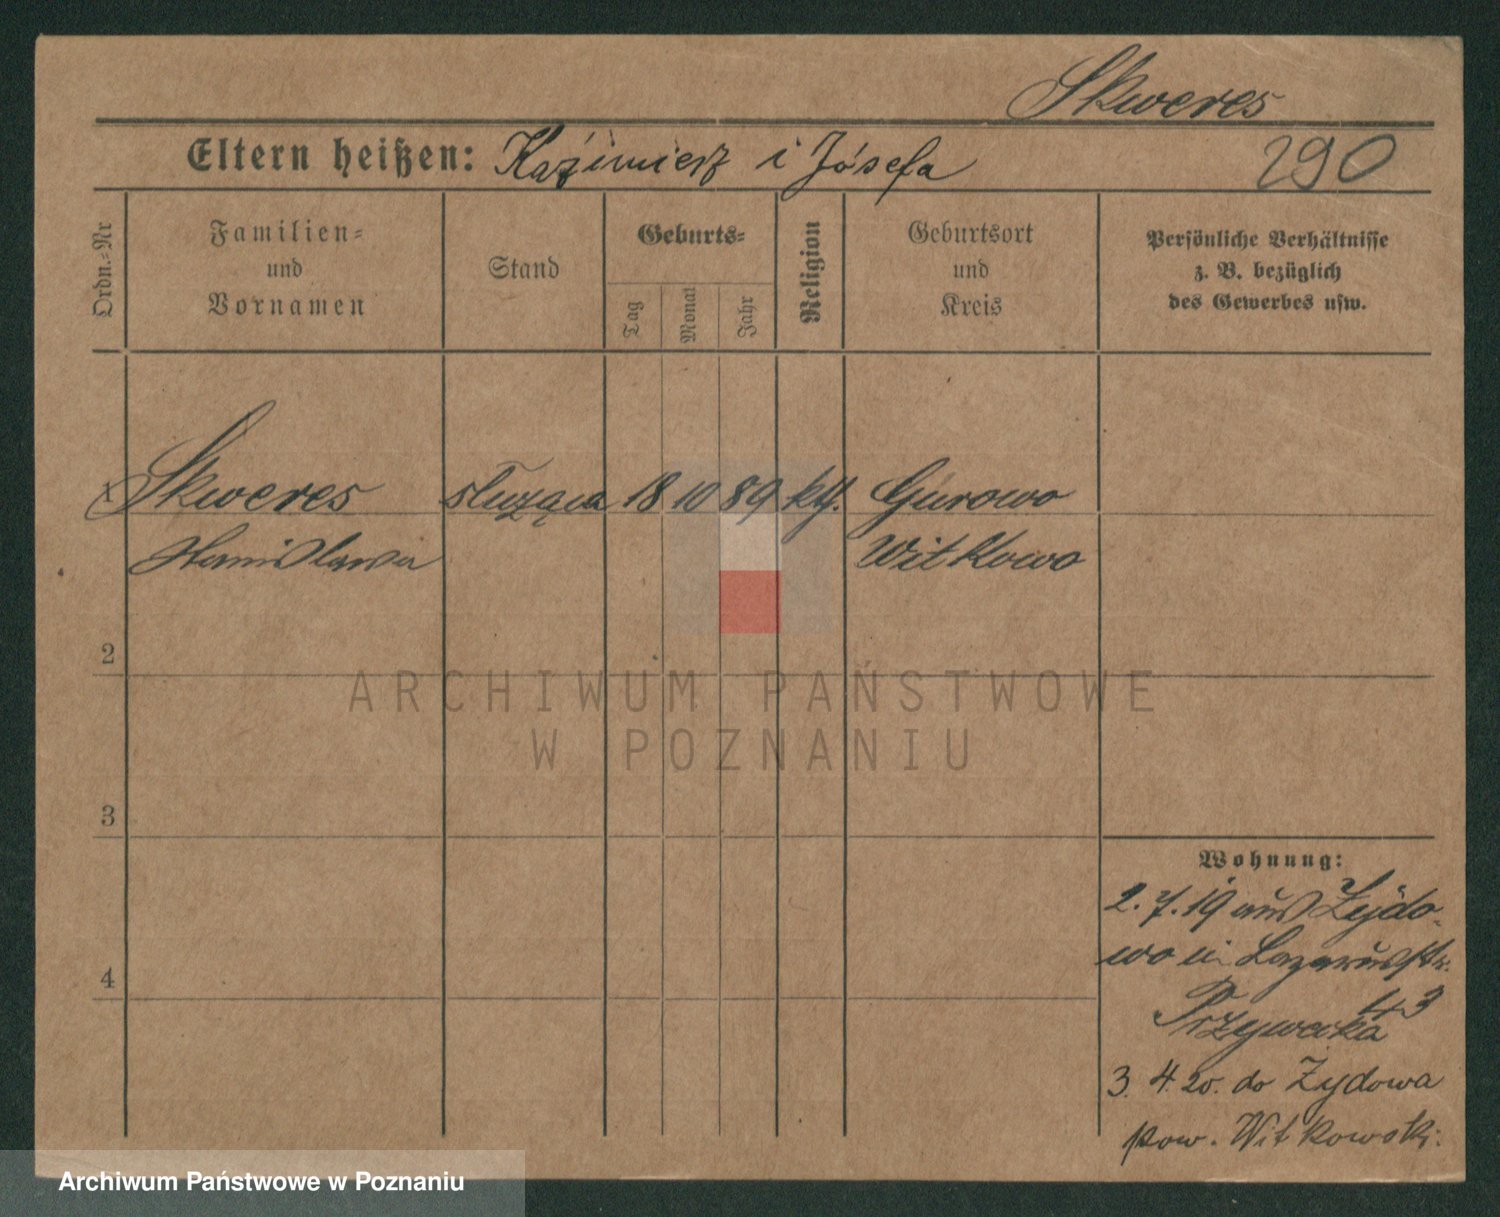 Skweres
Eltern heißen: Kaźimierz i Józefa
290
Ordn.=Nr
Familien=
und
Vornamen
Stand
Geburts=
Tag
Monat
Jahr
Religion
Geburtsort
und
Kreis
Persönliche Verhältnisse
z. B. bezüglich
des Gewerbes usw.
1 Skweres służąca 18 10 89 kth. Gurowo
Stanisława Witkowo
2
3
4
Wohnung:
2. 7. 19 aus Zydo-
wo in Lazarusstr.
43
Przywecka
3. 4. 20. do Żydowa
pow. Witkowski.
ARCHIWUM PAŃSTWOWE
W POZNANIU
Archiwum Państwowe w Poznaniu